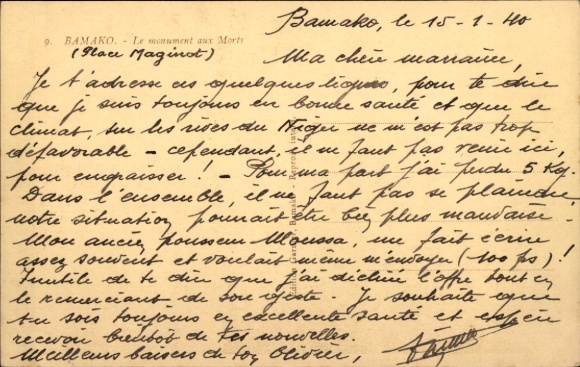 Bamako, le 15-1-40
9. BAMAKO. - Le monument aux Morts
(Place Maginot)
Ma chère marraine,
Je t'adresse ces quelques lignes, pour te dire
que je suis toujours en bonne santé et que le
climat, sur les rives du Niger ne m'est pas trop
défavorable - cependant, il ne faut pas venir ici,
pour engraisser! - Pour ma part j'ai perdu 5 Kg.
Dans l'ensemble, il ne faut pas se plaindre,
notre situation pourrait être bien plus mauvaise.
Mon ancien pousseur Moussa, me fait écrire
assez souvent et voulait même m'envoyer (100 frs)!
Inutile de te dire que j'ai décliné l'offre tout en
le remerciant de son geste. Je souhaite que
tu sois toujours en excellente santé et espère
recevoir bientôt de tes nouvelles.
Meilleurs baisers de ton Olivier,